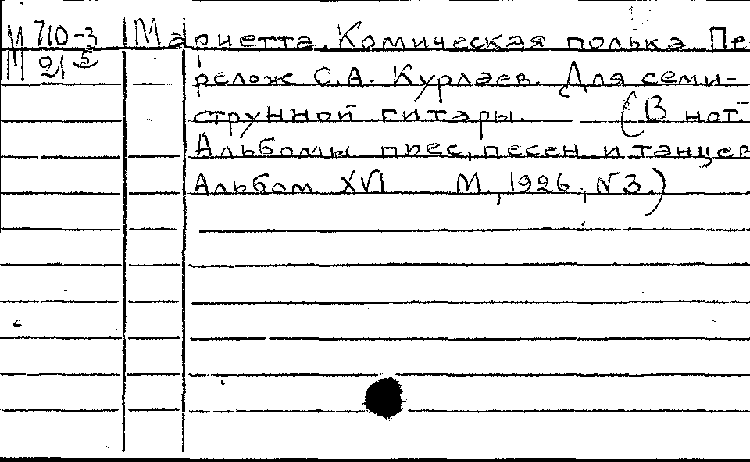 М 710-3 Мариетта. Комическая полька. Пе
М 21 релож С.А. Курлаев. Для семи-
струнной гитары. (В нот
Альбомы пьес, песен и танцев
Альбом XVI М., 1926, №3.)